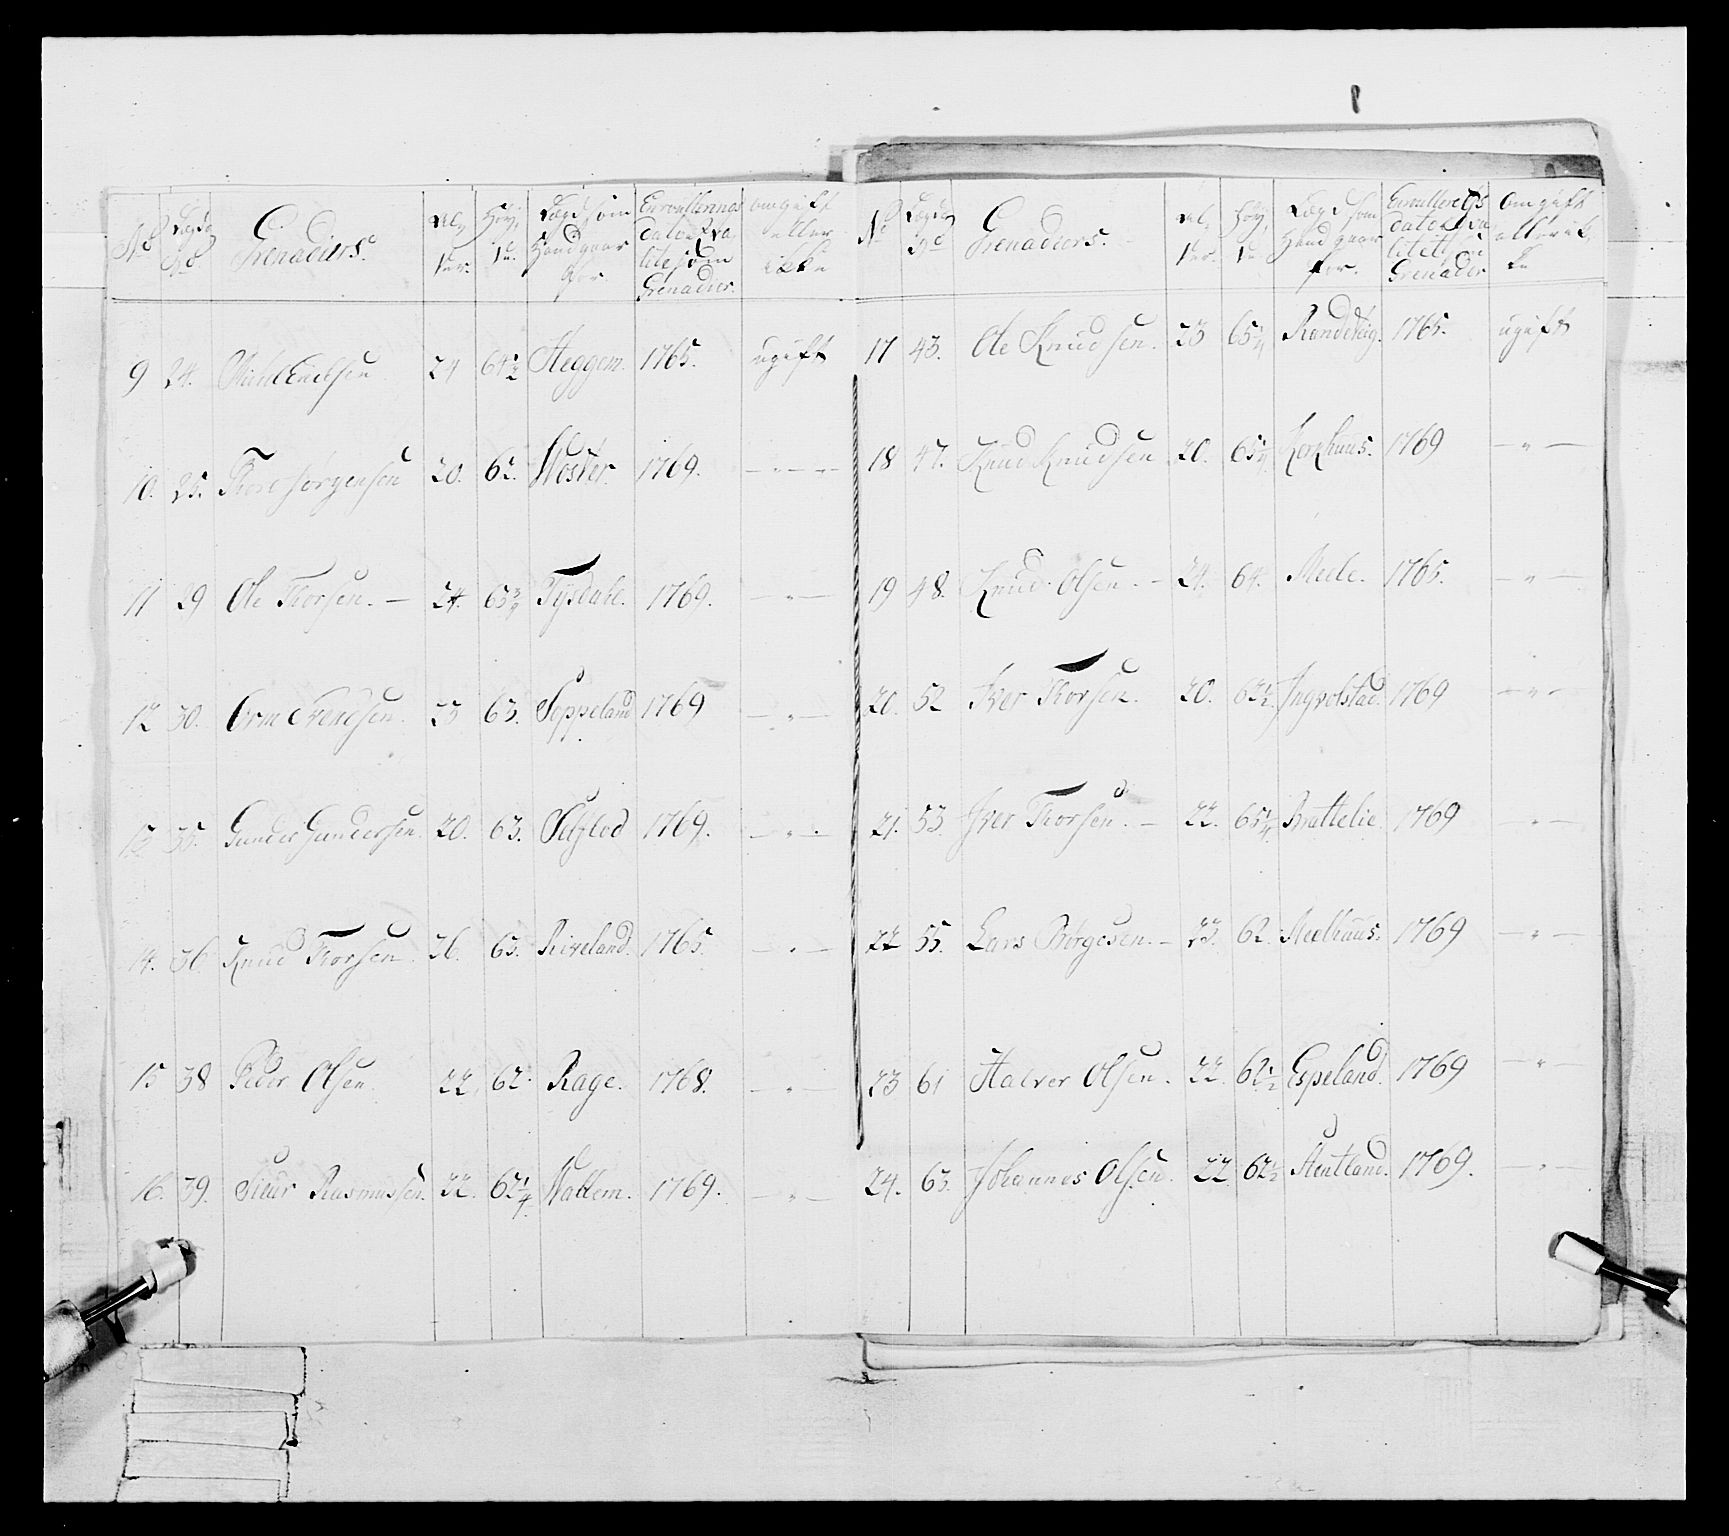 No
Lægds No
Grenadiers.
Al, ter.
Høy, de.
Lægd som Hand gaar for.
Enroullerings dato qva litet som Grenadier.
om gift eller ikke
9 24. Enersen 24 64½ Heggem. 1765. ugift
10. 25. Tore Jorgensen 20. 62. Woster. 1769. — " —
11 29 Ole Thorsen. — 24. 63¾ Tysdahl. 1769. — " —
12 30. Orm Svendsen. 23 63. Soppeland 1769 — " —
13 35. Gunder Gundersen. 20. 63. 1769. — " —
14. 36. Knud Thorsen. 26. 63. Riveland. 1765. — " —
15 38 Peder Olsen 22 62. Rage. 1768. — " —
16. 39. Siur Rasmussen. 22. 62¼ Wattem. 1769. — " —
No
Lægds No
Grenadiers.
Al, ter.
Høy, de.
Lægd som Hand gaar for.
Enroullerings dato qva litet som Grenadier
Om gift eller ik, ke
17 43. Ole Knudsen. 23 65¼ 1765. ugift
18 47. Knud Knudsen 20. 65¼ 1769 — " —
19 48. Knud Olsen. — 24. 64. Mele. 1765. — " —
20. 52 Iver Thorsen. 20. 62½ Ingvolstad. 1769 — " —
21. 53. Iver Thorsen. — 22. 65¼ Brattelie. 1769 — " —
22 55. Lars Borgesen. — 23. 62. Meelhuus. 1769 — " —
23 61 Halvor Olsen. 22. 62½ Espeland. 1769 — " —
24. 63. Johannes Olsen. 22 62½ 1769. — " —